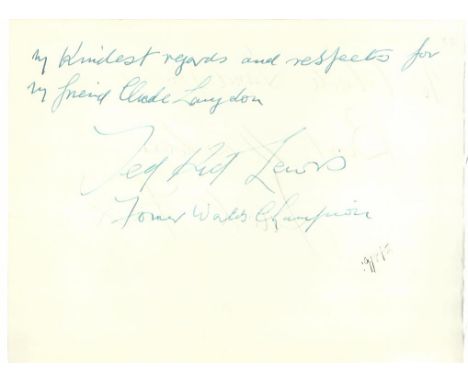 my Kindest regards and respects for
my friend Claude Langdon
Ted Kid Lewis
Former Worlds Champion